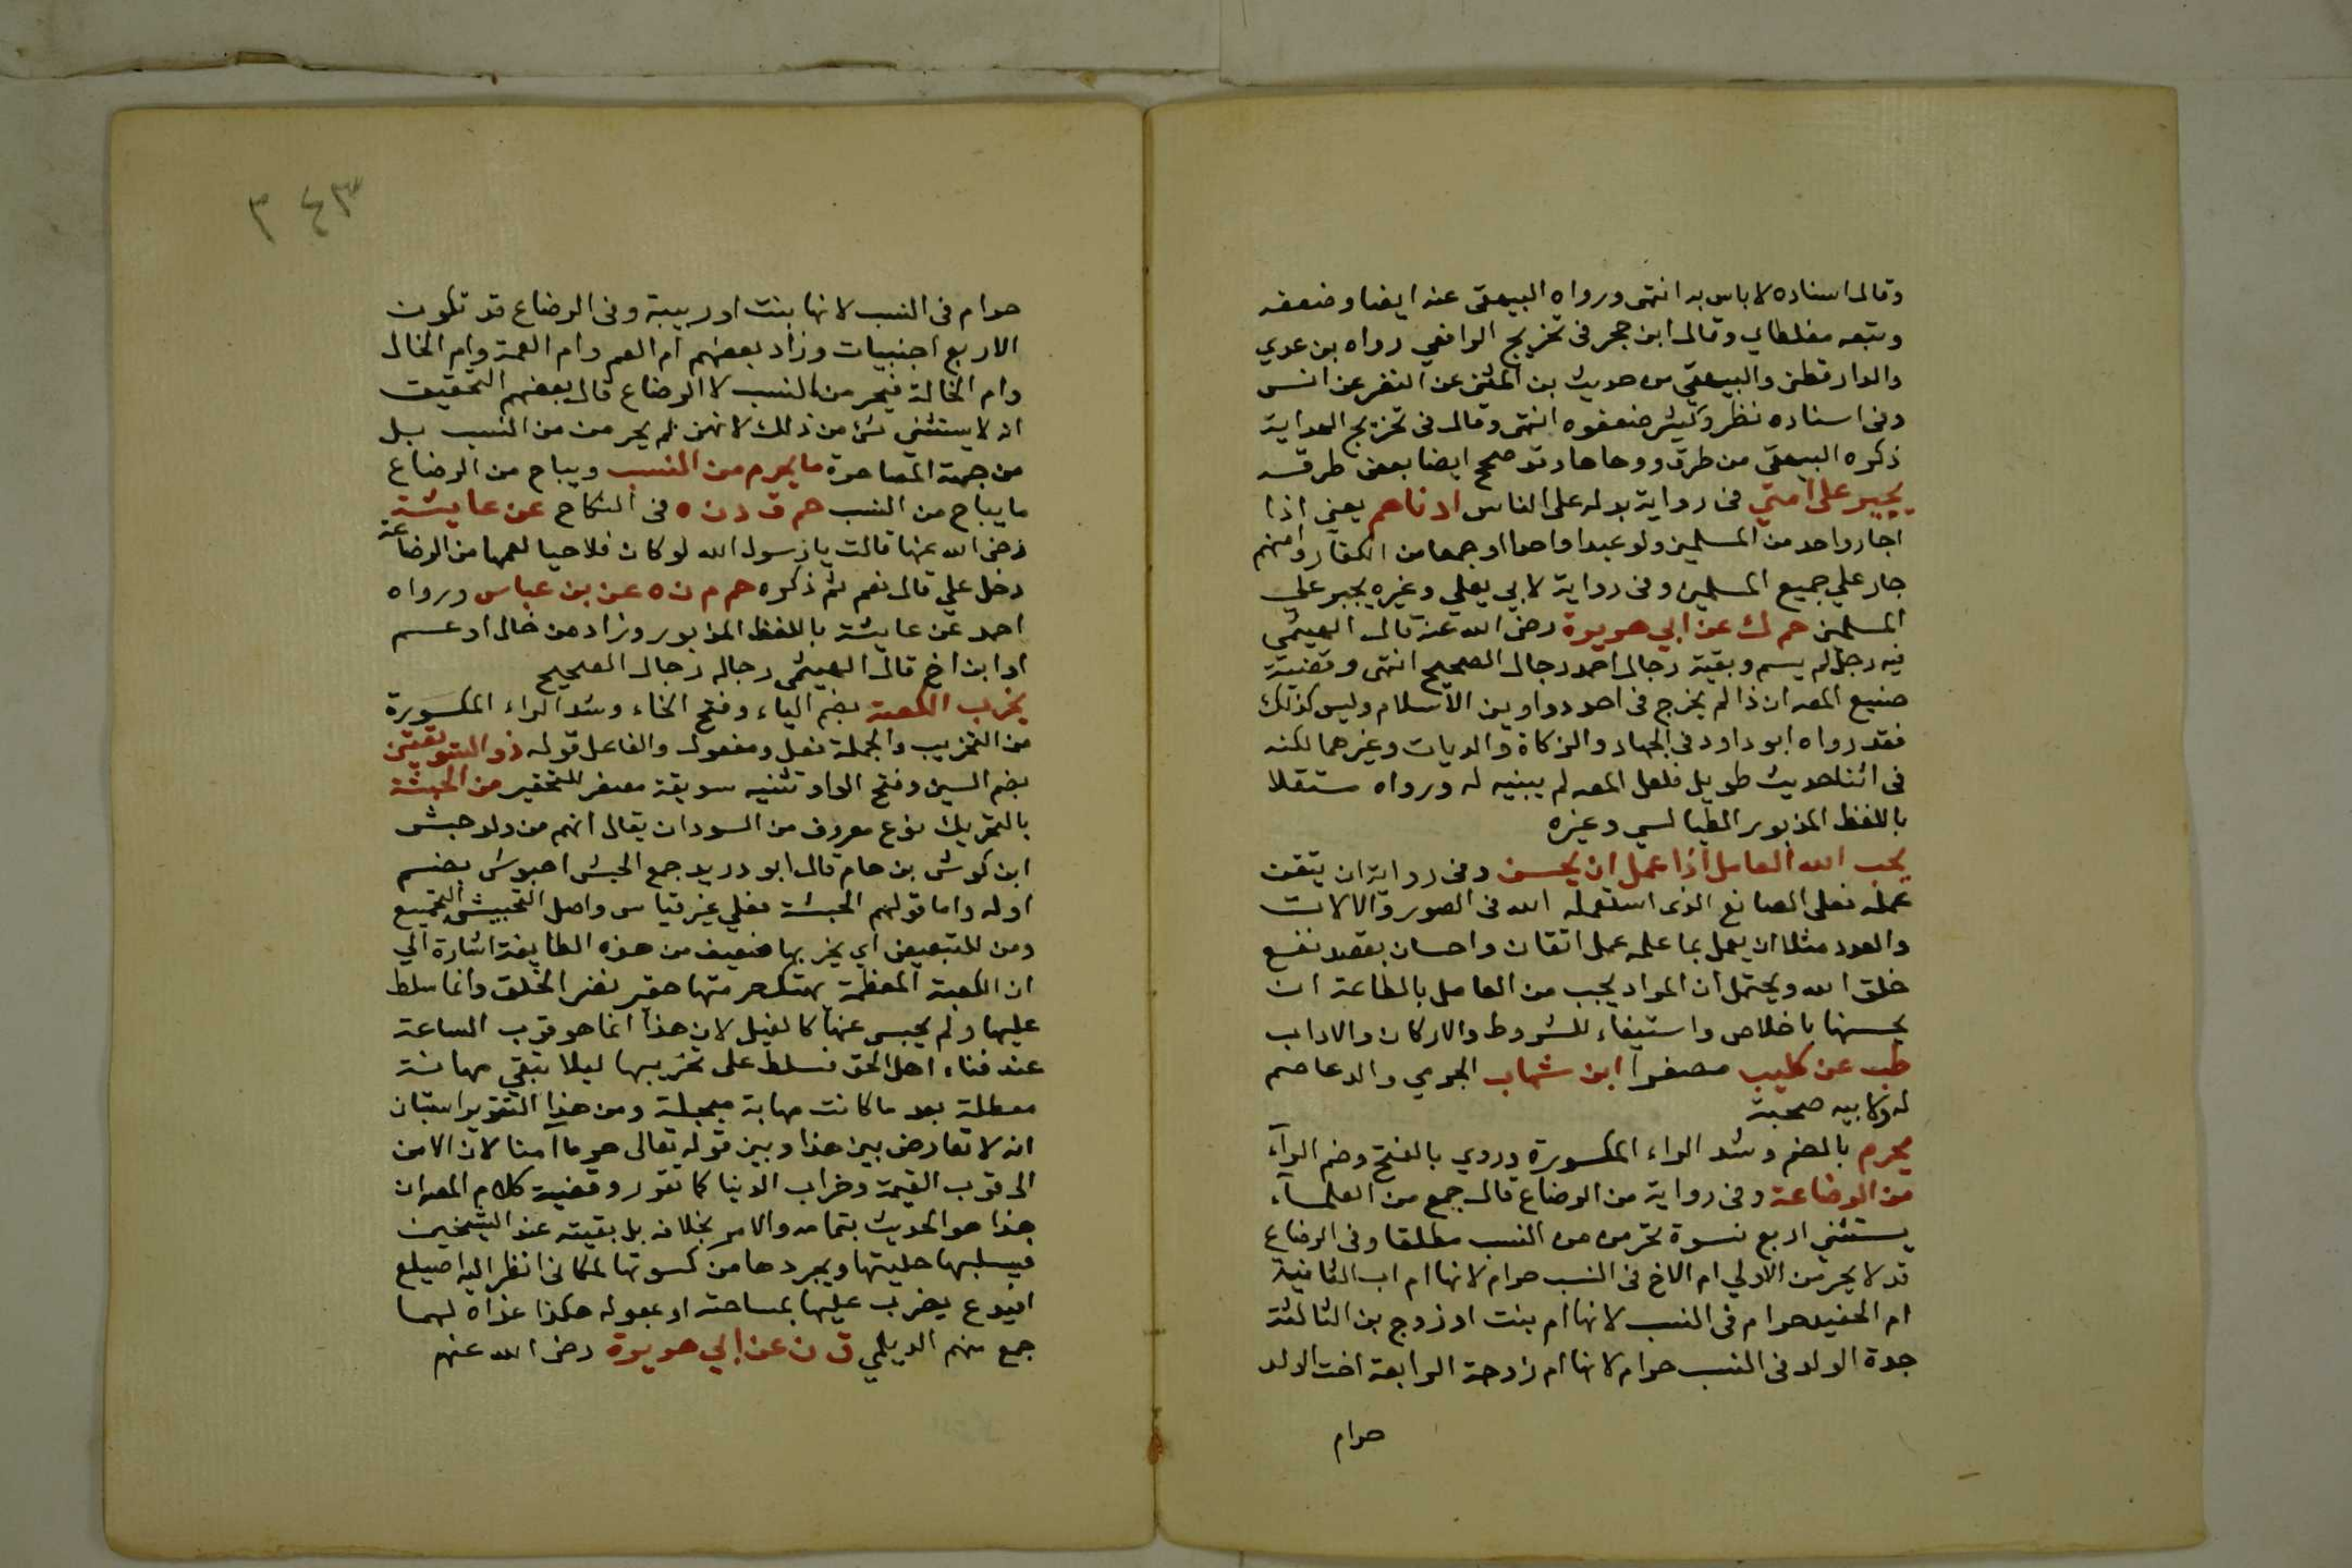 وقال اسناده لا باس به انتهى ورواه البيهقي عنه ايضا وضعفه
وتبعه مغلطاي وقال ابن حجر في تخريج الرافعي رواه بن عدي
والدارقطني والبيهقي من حديث بن المثنى عن النضر عن انس
وفي اسناده نظر وكثير ضعفوه انتهى وقال في تخريج الهداية
ذكره البيهقي من طرق ووهاها وقد صحح ايضا بعض طرقه
يجير على امتي في رواية بدله على الناس ادناهم يعني اذا
اجار واحد من المسلمين ولو عبدا واحدا او جمعا من الكفار وامنهم
جار علي جميع المسلمين وفي رواية لابي يعلي وغيره يجير علي
المسلمين حم ك عن ابي هريرة رضى الله عنه قال الهيثمي
فيه رجل لم يسم وبقية رجال احمد رجال الصحيح انتهى وقضية
صنيع المص ان ذا لم يخرج في احد دواوين الاسلام وليس كذلك
فقد رواه ابو داود في الجهاد والزكاة والديات وغيرهما لكنه
في اثنا حديث طويل فلعل المص لم يتنبه له ورواه مستقلا
باللفظ المزبور الطيالسي وغيره
يحب الله العامل اذا عمل ان يحسن وفي رواية ان يتقن
عمله فعلى الصانع الذى استعمله الله في الصور والالات
والعدد مثلا ان يعمل بما علمه عمل اتقان واحسان بقصد نفع
خلق الله ويحتمل ان المراد يحب من العامل بالطاعة ان
يحسنها باخلاص واستيفاء للشروط والاركان والاداب
طب عن كليب مصغرا ابن شهاب الجرمي والد عاصم
له ولابيه صحبة
يحرم بالضم وشد الراء المكسورة وروي بالفتح وضم الرآء
من الرضاعة وفي رواية من الرضاع قال جمع من العلمآء
يستثني اربع نسوة تحرمن من النسب مطلقا وفي الرضاع
قد لا يحرمن الاولي ام الاخ في النسب حرام لانها ام اب الثانية
ام الحفيد حرام في النسب لانها ام بنت او زوج بن الثالثة
جدة الولد في النسب حرام لانها ام زوجة الرابعة اخت الولد
حرام
٣٤٣
حرام في النسب لانها بنت او ربيبة وفي الرضاع قد تكون
الاربع اجنبيات وزاد بعضهم ام العم وام العمة وام الخال
وام الخالة فيحرمن النسب لا الرضاع قال بعضهم التحقيق
انه لا يستثني شئ من ذلك لانهن لم يحرمن من النسب بل
من جهة المصاهرة ما يحرم من النسب ويباح من الرضاع
ما يباح من النسب حم ق د ن ه في النكاح عن عايشة
رضى الله عنها قالت يا رسول الله لو كان فلا حيا لعمها من الرضاعة
دخل علي قال نعم ثم ذكره حم م ن ه عن بن عباس ورواه
احمد عن عايشة باللفظ المزبور وزاد من خال او عم
او ابن اخ قال الهيثمي رجاله رجال الصحيح
يخرب الكعبة بضم الياء وفتح الخاء وشد الراء المكسورة
من التخريب والجملة فعل ومفعول والفاعل قوله ذو السويقتين
بضم السين وفتح الواو تثنيه سويقة مصغر للتحقير من الحبشة
بالتحريك نوع معروف من السودان يقال انهم من ولد حبش
ابن كوش بن حام قال ابو دريد جمع الحبش احبوش بضم
اوله واما قولهم الحبشة فعلي غير قياس واصل التحبيش التجميع
ومن للتبعيض اي يخربها ضعيف من هذه الطايفة اشارة الي
ان الكعبة المعظمة يهتك حرمتها حقير نضر الخلق وانما سلط
عليها ولم يحبس عنها كالفيل لان هذا انما هو قرب الساعة
عند فناء اهل الحق فسلط على تخريبها ليلا تبقي مهانة
معطلة بعد ما كانت مهابة مبجلة ومن هذا التقرير استبان
انه لا تعارض بين هذا وبين قوله تعالى حرما امنا لان الامن
الى قرب القيمة وخراب الدنيا كما تقرر وقضية كلام المص ان
هذا هو الحديث بتمامه والامر بخلافه بل بقيته عند الشيخين
فيسلبها حليتها ويجردها من كسوتها لكاني انظر اليه اصيلع
افيدع يضرب عليها بمساحته او بعوله هكذا عزاه لهما
جمع منهم الديلمي ق ن عن ابي هريرة رضى الله عنهم